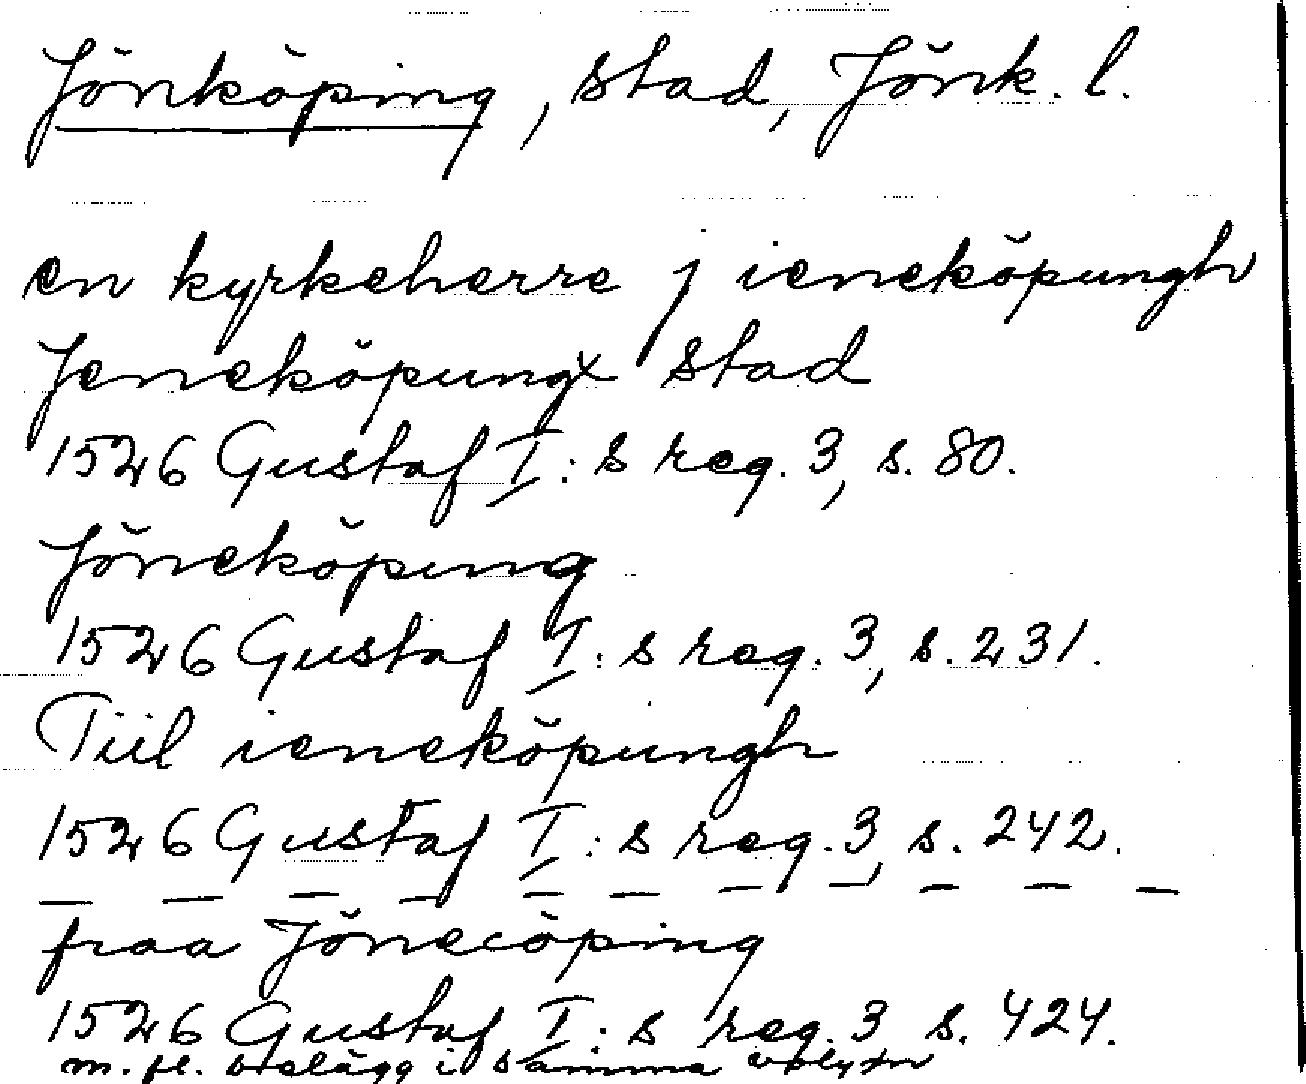 Jönköping, stad, Jönk. l.
en kyrkeherre j ieneköpungh
Jeneköpungx stad
1526 Gustaf I:s reg. 3, s. 80.
Jöneköping
1526 Gustaf I:s reg. 3, s. 231.
Tiil ieneköpungh
1526 Gustaf I:s reg. 3, s. 242.
— — — — — — — — — — —
fraa Jönecöping
1526 Gustaf I:s reg. 3 s. 424.
m. fl. belägg i samma volym